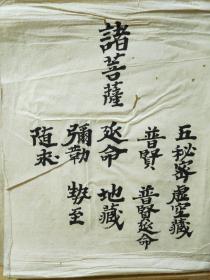 諸菩薩
五秘密 虚空藏
普賢 普賢延命
延命 地藏
彌勒 勢至
随求